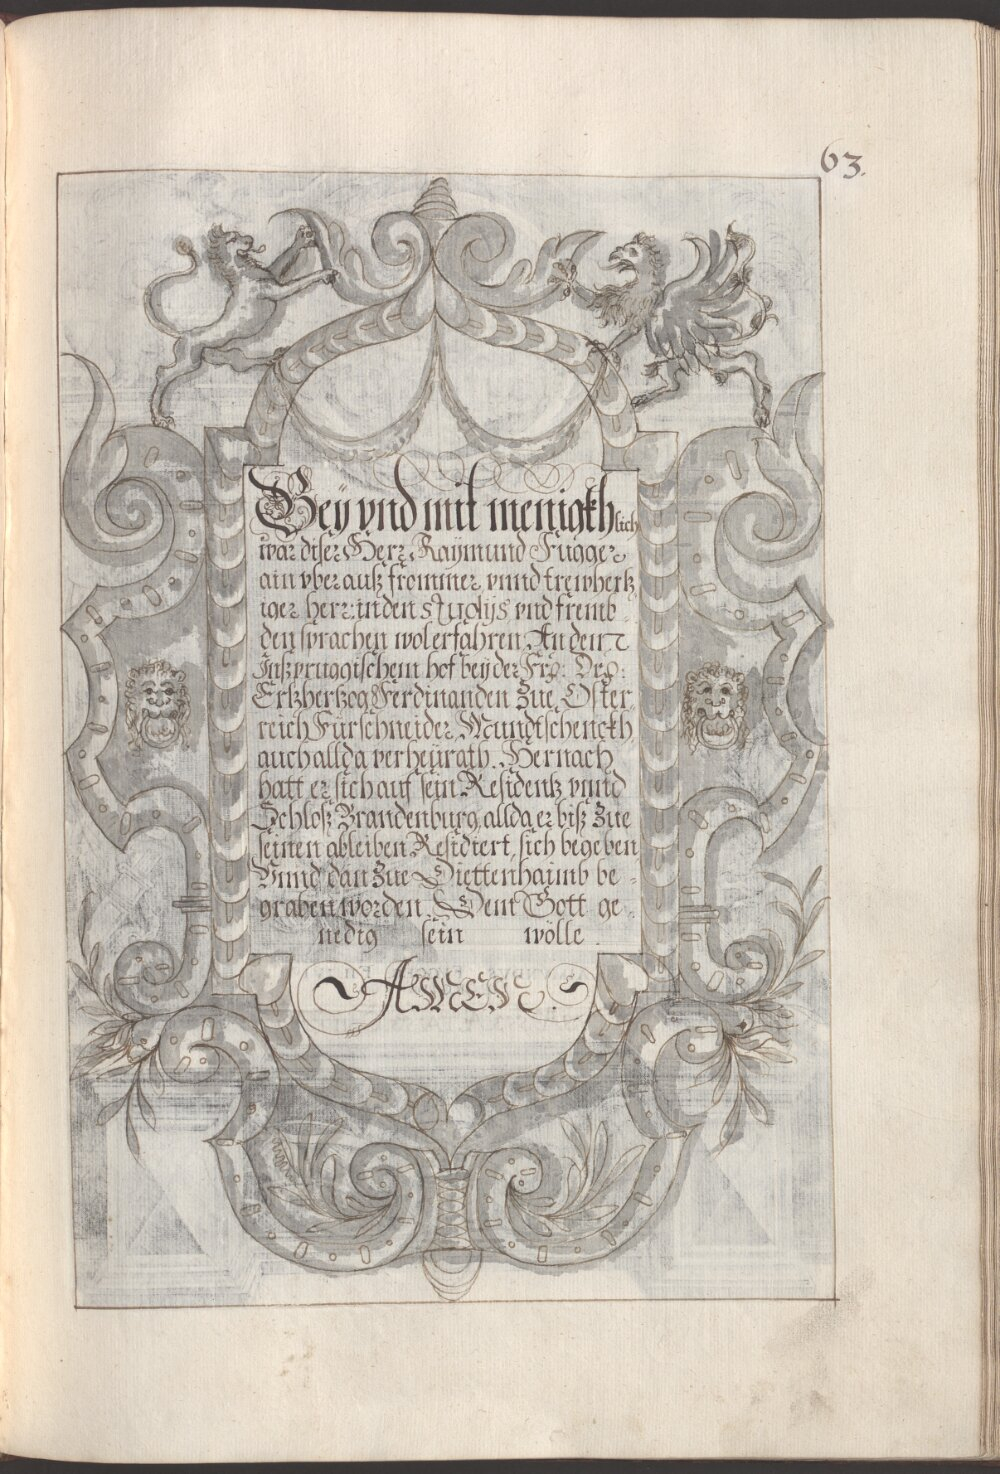 63.
Beÿ vnd mit menigkhlich
war diser Herr Raÿmund Fugger
ain vber auß frommer vnnd trewhertz
iger herr: in den studÿs vnd fremb
den sprachen wol erfahren An dem
Inßpruggischem hof beÿ der Frl: Drl:
Ertzhertzog Ferdinanden Zue Öster
reich Fürschneider, Mundtschenckh
auch allda verheÿrath. Hernach
hatt er sich auf sein Residentz vnnd
Schloß Brandenburg, allda er biß Zue
seinen ableiben Residiert, sich begeben
Vnnd dan Zue Diettenhaimb be-
graben worden. Dem Gott ge-
nedig sein wölle.
AMEN.